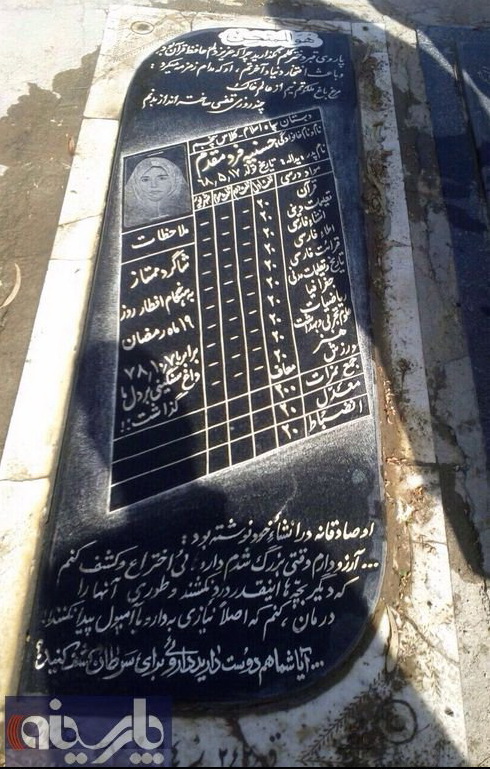 هوالرحمن
پا روی قبر دختر گلم نگذارید چرا که عزیز دلم حافظ قرآن بود
و باعث افتخار دنیا و آخرتم، او که مدام زمزمه میکرد:
مرغ باغ ملکوتم نیم از عالم خاک
چند روزی قفسی ساخته‌اند از بدنم
دبستان سپاه اسلام - کلاس پنجم
نام و نام خانوادگی: حسنیه فرد مقدم
نام پدر: یداله: تاریخ تولد ۶۸،۵،۱۷
مواد درسی
ملاحظات
قرآن ۲۰ - - -
تعلیمات دینی ۲۰ - - -
انشاء فارسی ۲۰ - - -
املاء فارسی ۲۰ - - -
قرائت فارسی ۲۰ - - -
تاریخ و تعلیمات مدنی ۲۰ - - -
جغرافیا ۲۰ - - -
ریاضیات ۲۰ - - -
علوم تجربی و بهداشت ۲۰ - - -
هنر ۲۰ - - -
ورزش معاف - - -
جمع نمرات ۲۰۰
معدل ۲۰
انضباط ۲۰
شاگرد ممتاز
به هنگام افطار روز
۱۹ ماه رمضان
برابر با
داغ سنگینی بر دل ما
گذاشت!!
او صادقانه در انشاء خود نوشته بود:
... آرزو دارم وقتی بزرگ شدم داروئی اختراع و کشف کنم
که دیگر بچّه‌ها اینقدر درد نکشند و طوری آنها را
درمان کنم که اصلاً نیازی به دارو یا آمپول پیدا نکنند.
... آیا شما هم دوست دارید داروئی برای سرطان کشف کنید؟
پارسینه